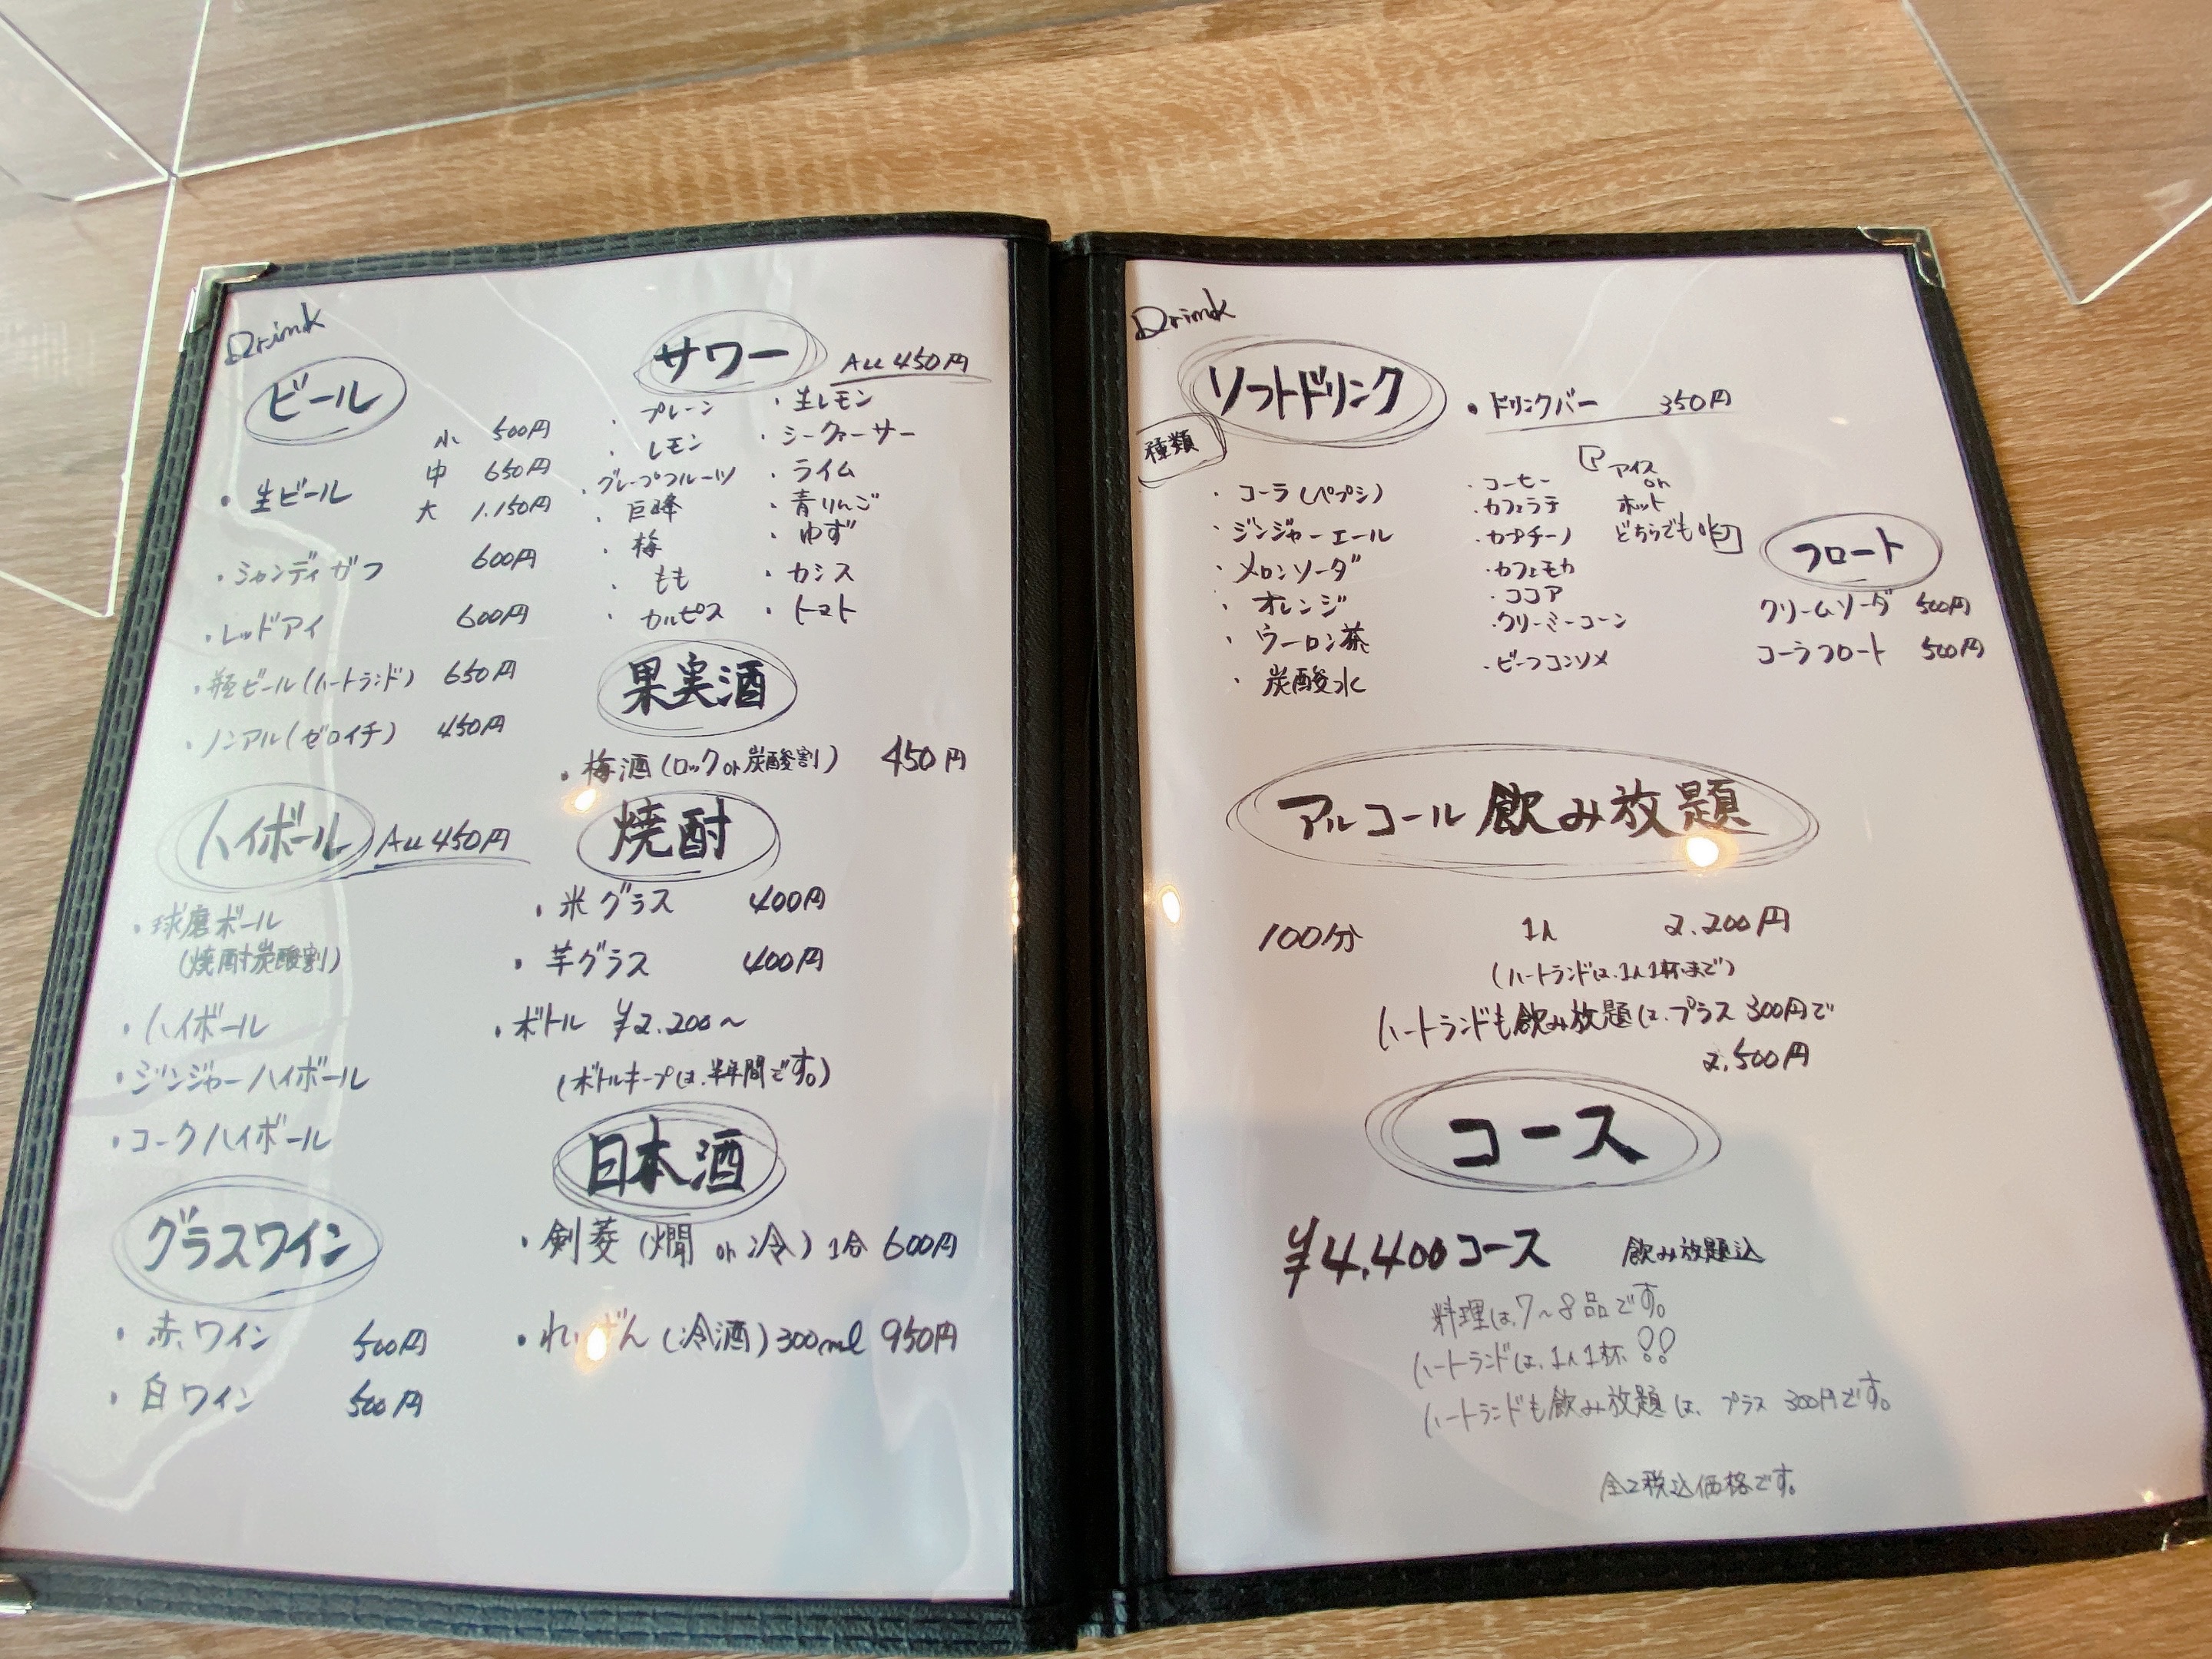 Drink
ビール
生ビール
小 500円
中 650円
大 1,150円
・シャンディガフ 600円
・レッドアイ 600円
・瓶ビール(ハートランド) 650円
・ノンアル(ゼロイチ) 450円
ハイボール ALL 450円
・球磨ボール
(焼酎炭酸割)
・ハイボール
・ジンジャーハイボール
・コークハイボール
グラスワイン
・赤ワイン 500円
・白ワイン 500円
サワー ALL 450円
・プレーン
・レモン
・グレープフルーツ
・巨峰
・梅
・もも
・カルピス
・生レモン
・シークァーサー
・ライム
・青りんご
・ゆず
・カシス
・トマト
果実酒
・梅酒(ロック or 炭酸割) 450円
焼酎
・米グラス 400円
・芋グラス 400円
・ボトル ¥2,200〜
(ボトルキープは、半年間です。)
日本酒
・剣菱(燗 or 冷) 1合 600円
・れいざん(冷酒) 300ml 950円
Drink
ソフトドリンク
・ドリンクバー 350円
種類
・コーラ(ペプシ)
・ジンジャーエール
・メロンソーダ
・オレンジ
・ウーロン茶
・炭酸水
・コーヒー
・カフェラテ
・カプチーノ
・カフェモカ
・ココア
・クリーミーコーン
・ビーフコンソメ
アイス
or
ホット
どちらでも可
フロート
クリームソーダ 500円
コーラフロート 500円
アルコール飲み放題
100分 1人 2,200円
(ハートランドは、1人1杯まで)
ハートランドも飲み放題は、プラス300円で
2,500円
コース
¥4,400コース 飲み放題込
料理は、7〜8品です。
ハートランドは、1人1杯!!
ハートランドも飲み放題は、プラス 300円です。
全て税込価格です。